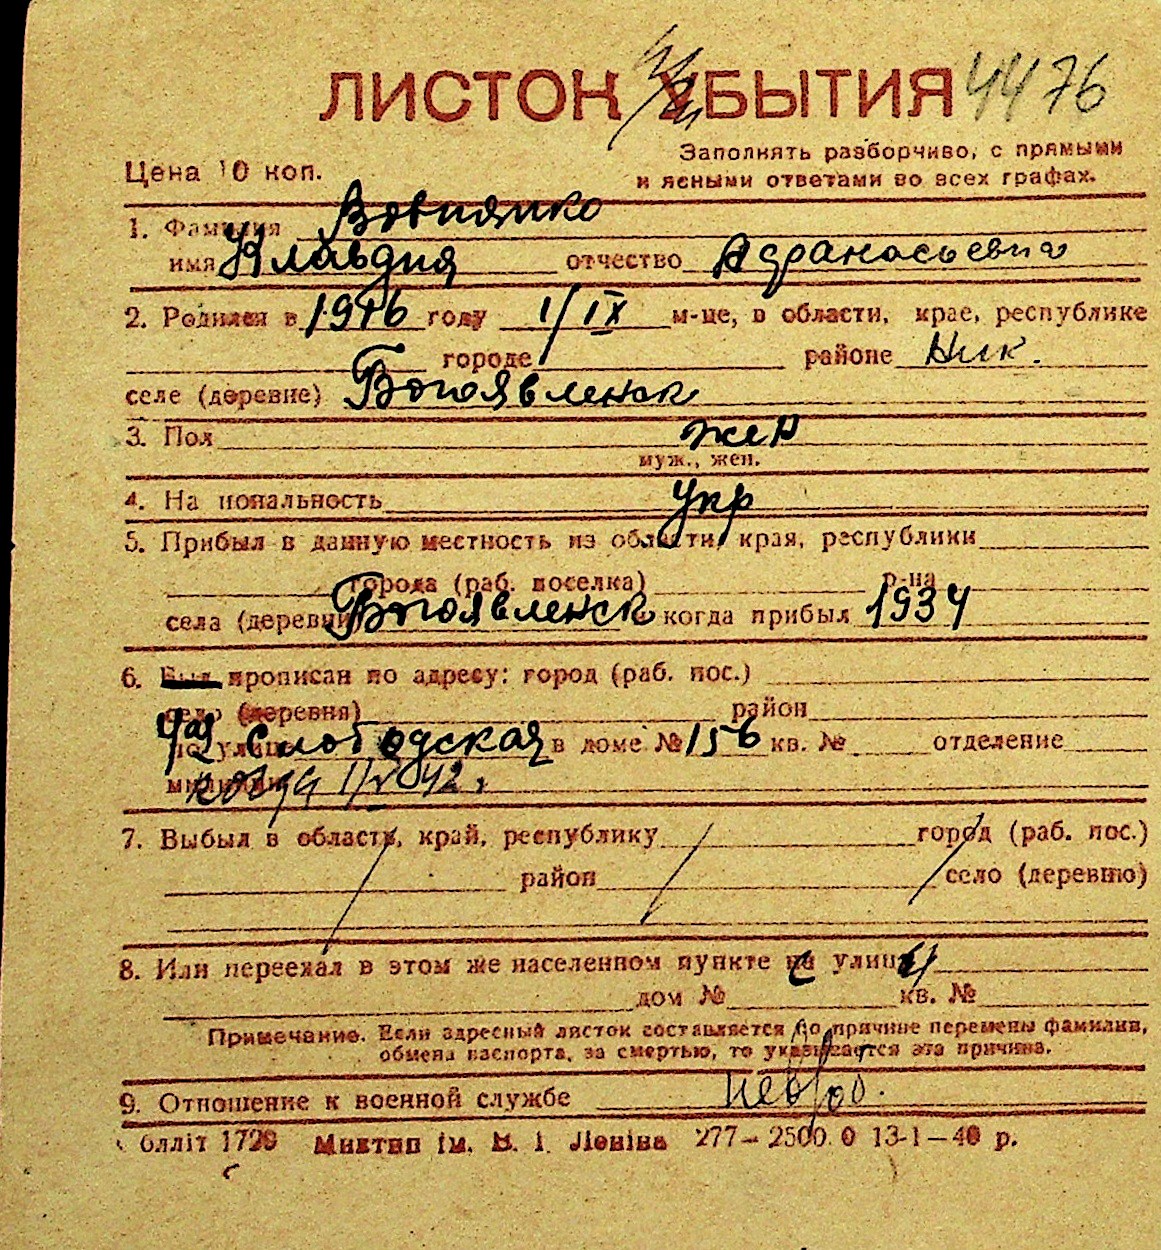 ЛИСТОК УБЫТИЯ 4476
Заполнять разборчиво, с прямыми
Цена 10 коп. и ясными ответами во всех графах.
1. Фамилия Вовнянко
имя Клавдия отчество Афанасьевна
2. Родился в 1916 году 1/IX м-це, в области, крае, республике
городе районе Ник.
селе (деревне) Богоявленск
3. Пол жен
муж., жен.
4. Национальность укр
5. Прибыл в данную местность из области, края, республики
города (раб. поселка) р-на
села (деревни) Богоявленск когда прибыл 1934
6. Был прописан по адресу: город (раб. пос.)
село (деревня) район
по улице Слободская в доме № 156 кв. № отделение
милиции когда 1/V 42 г.
7. Выбыл в область, край, республику город (раб. пос.)
район село (деревню)
8. Или переехал в этом же населенном пункте на улицу
дом № кв. №
Примечание. Если адресный листок составляется по причине перемены фамилии,
обмена паспорта, за смертью, то указывается эта причина.
9. Отношение к военной службе невоб.
оллiт 1729 Миктип iм. В. I. Ленiна 277—2500.0 13-1—40 р.